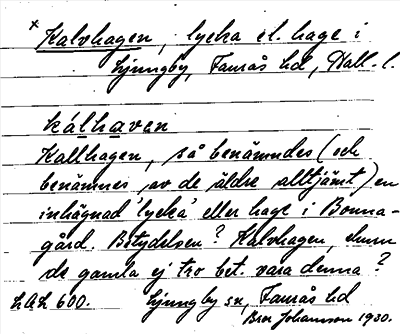 x Kalvhagen, lycka el. hage i
Ljungby, Faurås hd, Hall. l.
kálhavən
Kallhagen, så benämndes (och
benämnes av de äldre alltjämt) en
inhägnad 'lycka' eller hage i Bonna-
gård. Betydelsen? Kalvhagen, skum
de gamla ej tro bet. vara denna?
LAL 600. Ljungby sn, Faurås hd
Bror Johansson 1930.